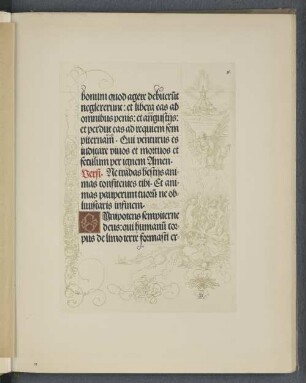 bonum quod agere debuerũt
neglexerunt: et libera eas ab
omnibus penis: et angustijs:
et perduc eas ad requiem sem
piternam. Qui venturus es
iudicare viuos et mortuos et
seculum per ignem Amen.
Vers. Ne tradas bestijs ani
mas confitentes tibi. Et ani
mas pauperum tuorũ ne ob
liuiscaris in finem.
Omnipotens sempiterne
deus: qui humanũ cor
pus de limo terre formasti ex